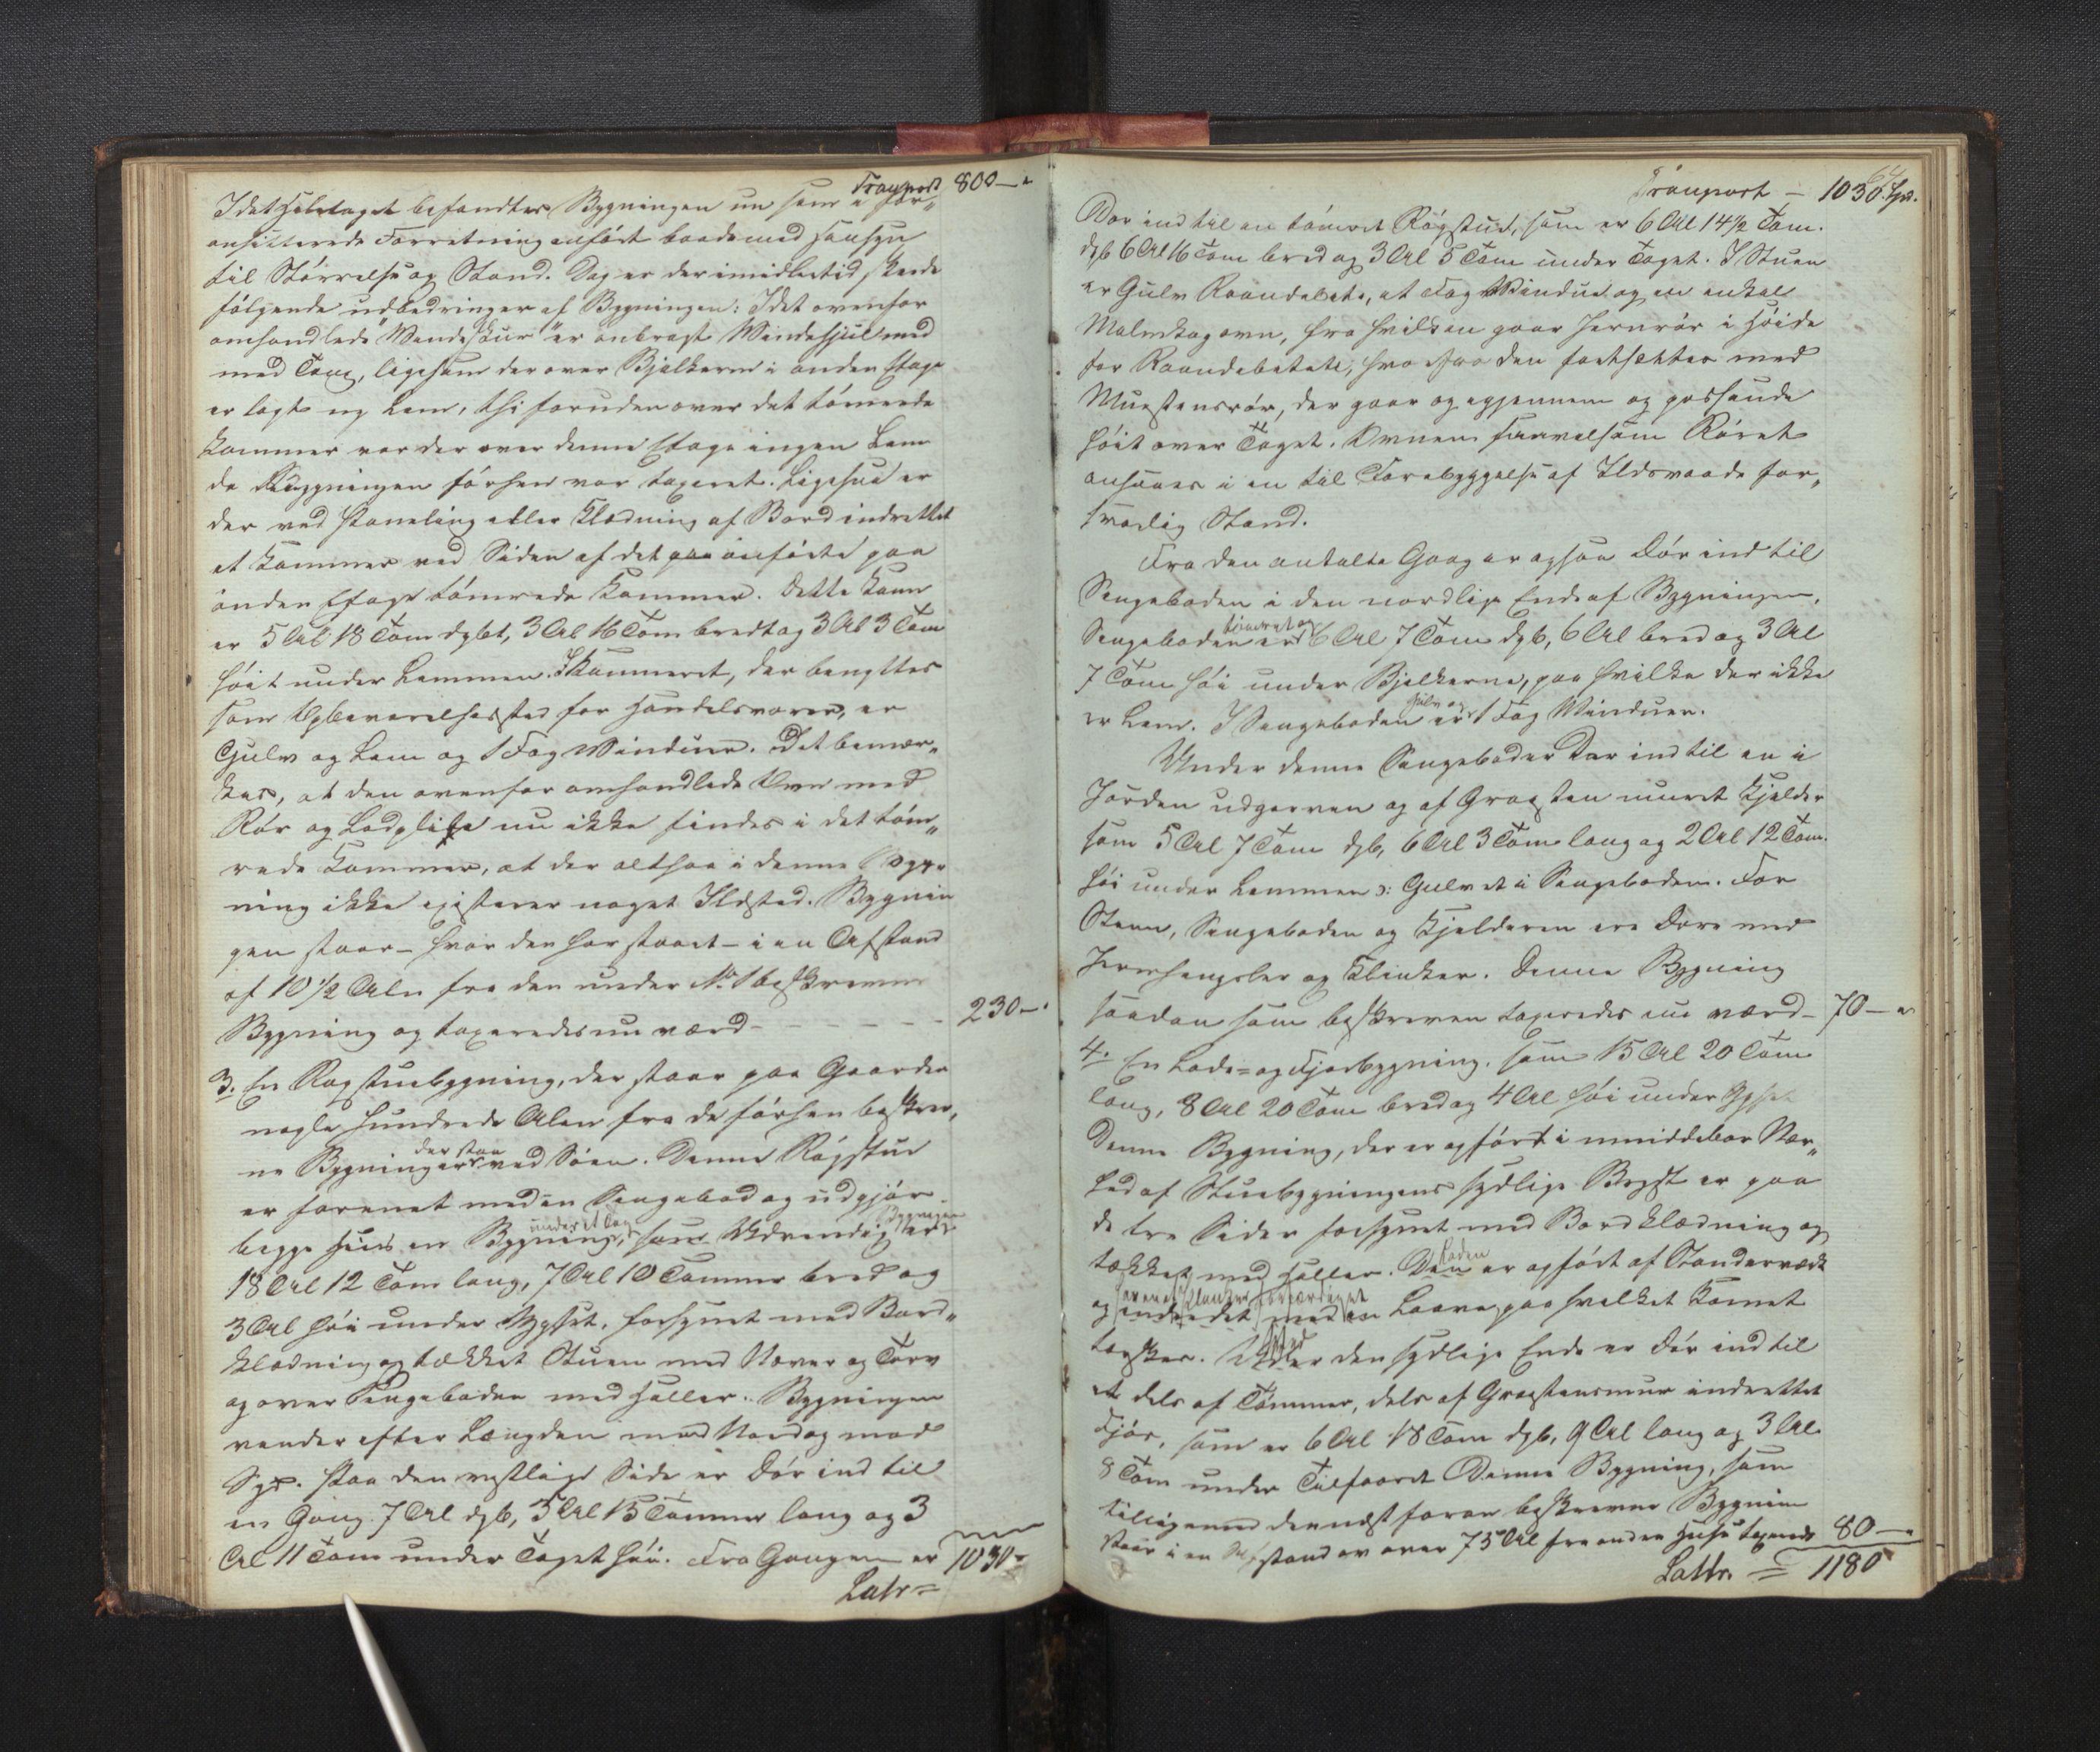 Transport 800 –
I det Heletaget befandtes Bygningen nu som i for-
anførte Forretning anført baade med Hensyn
til Størrelse og Stand. Dog er der imidlertid skeede
følgende udbedringer af Bygningen: I det ovenfor
omhandlede "Vindeskuur" er anbragt Vindehjul med
med Toug, ligesom der over Bjelkerne i anden Etage
er lagt ny Lem, thi foruden over det tømrede
Kammer var der over denne Etage ingen Lem
da Bygningen førhen var taxeret. Ligesaa er
der ved Paneling eller Klædning af Bord indrettet
et Kammer ved Siden af det anførte paa
anden Etage tømrede Kammer. Dette Kamr
er 5 Al 18 Tom dybt, 3 Al 16 Tom bredt og 3 Al 3 Tom
høit under Lemmen. I Kammeret, der benyttes
som Opbevarelsessted for Handelsvarer, er
Gulv og Lem og 1 Fag Vinduer. Det bemær-
kes, at den ovenfor omhandlede Ovn med
Rør og nu ikke findes i det tøm-
rede Kammer, at der altsaa i denne Byg-
ning ikke existerer noget Ildsted. Bygnin
gen staar – hvor den har staaet – i en Afstand
af 10 1/2 Alen fra den under No 1 beskrevne
Bygning og taxeredes nu værd – – – – – 230 –
3. En Røgstuebygning, der staar paa Gaarden
nogle hundrede Alen fra de førhen beskrev-
ne Bygninger der staa ved Søen. Denne Røgstue
er forenet med en Sengebod og udgjør
begge Huse en Bygning under et Tag, som Udvendig Bygningen er
18 Al 12 Tom lang, 7 Al 10 Tommer bred og
3 Al høi under Gesset, forsynet med Bord-
klædning og tækket Stuen med Næver og Tørv
og over Sengeboden med Heller. Bygningen
vender efter Længden mod Nord og mod
Syd. Paa den vestlige Side er Dør ind til
en Gang 7 Al dyb, 3 Al 15 Tommer lang og 3
Al 11 Tom under Taget høi. Fra Gangen er 1030 –
Latr =
64
Transport – 1030 Spd.
Dør ind til en tømret Røgstue, som er 6 Al 14 1/2 Tom.
dyb 6 Al 16 Tom bred og 3 Al 5 Tom under Taget. I Stuen
er Gulv Raundebeta, et Fag Vinduer og en enkel
Malmkagovn, fra hvilken gaar Jernrør i Høide
for Raundebetet, hvorfra den fortsættes med
Muurstensrør, der gaar og igjennem og passende
høit over Taget. Ovnen saavelsom Røret
ansaaes i en til Forebyggelse af Ildsvaade for-
svarlig Stand.
Fra den omtalte Gang er ogsaa Dør ind til
Sengeboden i den nordlige Ende af Bygningen.
Sengeboden er tømret og 6 Al 7 Tom dyb, 6 Al bred og 3 Al
7 Tom høi under Bjelkerne, paa hvilke der ikke
er Lem. I Sengeboden er Gulv og 1 Fag Vinduer.
Under denne Sengebod er Dør ind til en i
Jorden udgraven og af Graasten muret Kjelder
som 5 Al 7 Tom dyb, 6 Al 3 Tom lang og 2 Al 12 Tom.
høi under Lemmen ɔ: Gulvet i Sengeboden. For
Stuen, Sengeboden og Kjelderen ere Døre med
Jernhængsler og Klinker. Denne Bygning
saadan som beskreven taxeredes nu værd – 70 –
4. En Lade- og Fjøsbygning, som 15 Al 20 Tom
lang, 8 Al 20 Tom bred og 4 Al høi under Gesset
Denne Bygning, der er opført i umiddelbar Nær-
hed af Stuebygningens sydlige Bryst er paa
de tre Sider forsynet med Bordklædning og
tækket med Heller. Laden er opført af Standerværk
og Laave, paa hvilket Kornet
tærskes. Ved den sydlige Ende er Dør ind til
et dels af Tømmer, dels af Graastensmur indrettet
Fjøs, som er 6 Al 18 Tom dyb, 9 Al lang og 3 Al
8 Tom under Tilfaaret. Denne Bygning, som
tilligemed den næst foran beskrevne Bygning
staar i en Afstand av over 75 Al fra andre Huse taxeredes 80 –
Lattr. = 1180